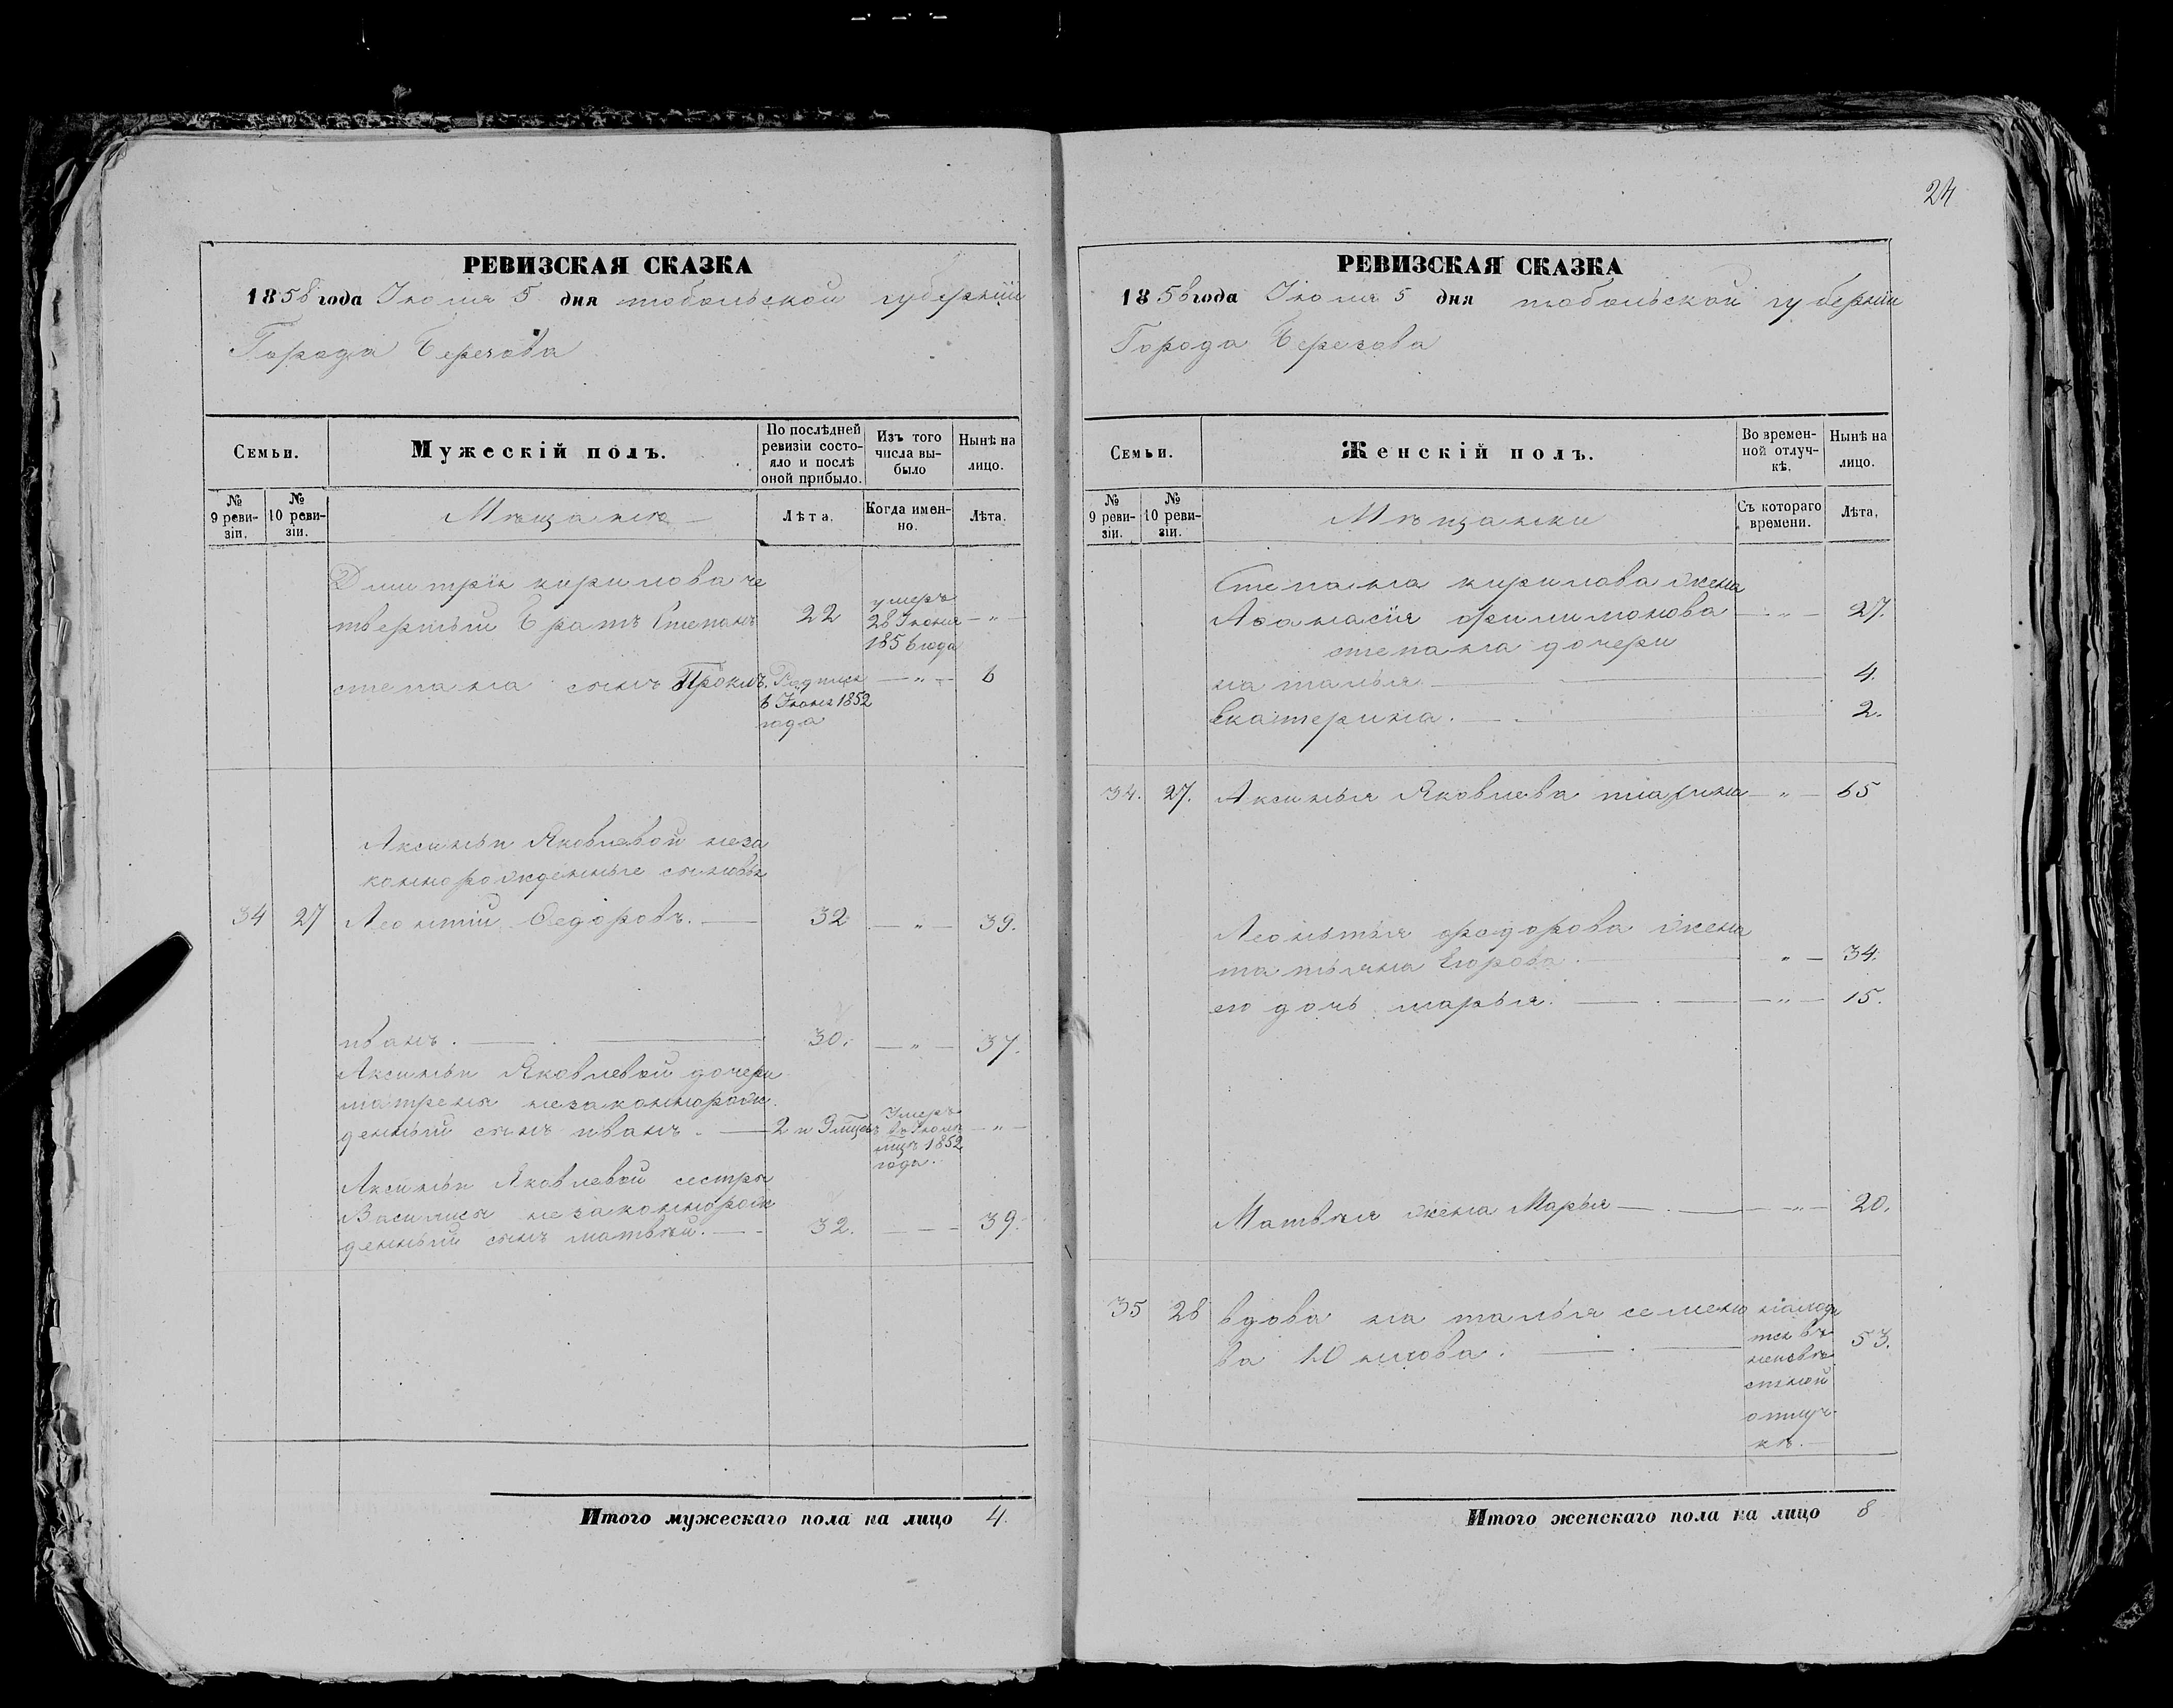 РЕВИЗСКАЯ СКАЗКА
1858 года Іюля 5 дня тобольской губерніи
Города Березова
Семьи.
Мужескій полъ.
По послѣдней ревизіи состо-
яло и послѣ оной прибыло.
Изъ того числа вы-
было
Нынѣ на лицо.
№ 9 реви-
зіи.
№ 10 реви-
зіи.
Мѣщане
Лѣта.
Когда имен-
но.
Лѣта.
Дмитрія кирилова че
твертый братъ Степанъ 22 умеръ 28 Іюня 1856 года — „ —
степана сынъ Родился 6 Іюня 1852 года — „ — 6
Аксиньи Яковлевой неза
коннорожденные сыновья
34 27 Леонтій Ѳедоровъ. 32 — „ — 39.
иванъ. 30. — „ — 37.
Аксиньи Яковлевой дочери
матрены незаконнорож
денный сынъ иванъ. 2 и 9 мцовъ Умеръ въ мцѣ 1852 года. — „ —
Аксиньи Яковлевой сестры
Василисы незаконнорож
денный сынъ матвѣй. 32. — — 39.
Итого мужескаго пола на лицо 4.
24
РЕВИЗСКАЯ СКАЗКА
1858 года Іюля 5 дня тобольской губерніи
Города Березова
Семьи.
Женскій полъ.
Во времен-
ной отлуч-
кѣ.
Нынѣ на лицо.
№ 9 реви-
зіи.
№ 10 реви-
зіи.
Мѣщанки
Съ котораго времени.
Лѣта.
Степана кирилова жена
Афанасія филимонова — „ — 27.
степана дочери
наталья 4.
Екатерина. 2.
34. 27. Аксинья Яковлева — „ — 65
Леонтья федорова жена
татьяна Егорова. „ — 34.
его дочь марья. — „ — 15.
Матвѣя жена Марья — „ — 20.
35 28 вдова наталья семено
ва 53.
находи
тся въ
неизвѣ
стной
отлуч-
кѣ.
Итого женскаго пола на лицо 8